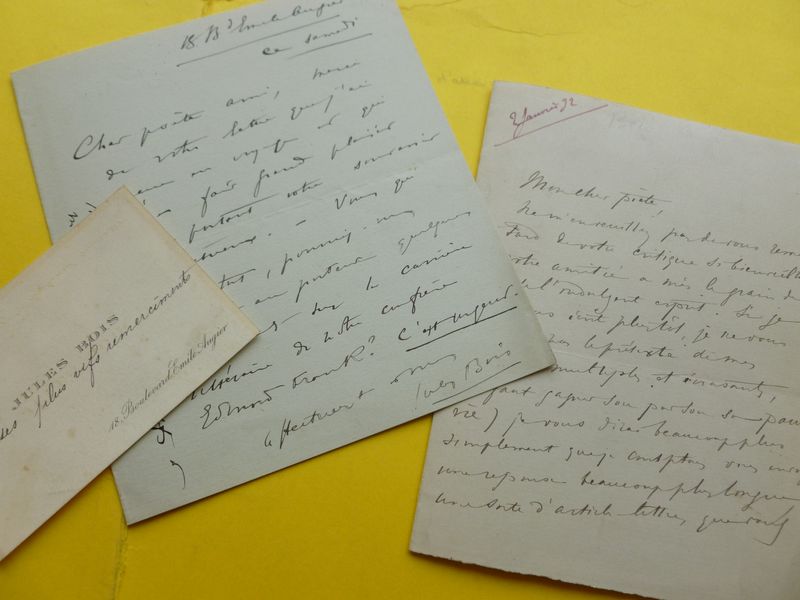 18. Bd Emile Augier
Ce samedi
Cher poète ami, merci
de votre lettre que j'ai
en voyage et qui
fait grand plaisir
portant votre souvenir
- Vous qui
, pourriez-vous
au porteur quelques
sur la carrière
littéraire de notre confrère
Edmond Frank? C'est urgent.
Affectueux à vous
Jules Bois
JULES BOIS
ses plus vifs remerciments
18, Boulevard Emile-Augier
2 Janvier 92
Mon cher poète!
Ne m'en veuillez pas de vous remer
tard de votre critique si bienveill
votre amitié a mis le grain de
à l'indulgent esprit. Si je
plus tôt, je ne vous
pas le prétexte de mes
multiples et écrasants,
faut gagner son pain
vie) je vous dirai beaucoup plus
simplement que je comptais vous
une réponse beaucoup plus longue
une sorte d'article-lettre, que